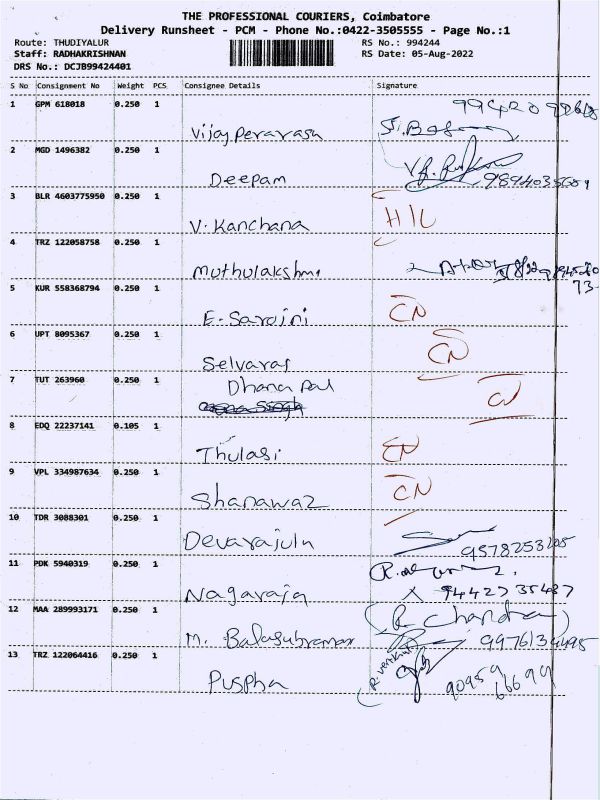 THE PROFESSIONAL COURIERS, Coimbatore
Delivery Runsheet - PCM - Phone No.:0422-3505555 - Page No.:1
Route: THUDIYALUR RS No.: 994244
Staff: RADHAKRISHNAN RS Date: 05-Aug-2022
DRS No.: DCJB99424401
S No Consignment No Weight PCS Consignee Details Signature
1 GPM 618018 0.250 1
Vijay Perarasu
2 MGD 1496382 0.250 1
Deepam
3 BLR 4603775950 0.250 1
V. Kanchana H/L
4 TRZ 122058758 0.250 1
Muthulakshmi
73
5 KUR 558368794 0.250 1
E. Sarojini CN
6 UPT 8095367 0.250 1 CN
Selvaraj
7 TUT 263960 0.250 1 Dhana Pal
8 EDQ 22237141 0.105 1
Thulasi CN
9 VPL 334987634 0.250 1
Shanawaz CN
10 TDR 3088301 0.250 1
Devarajulu 9578253205
11 PDK 5940319 0.250 1
Nagaraja 9442735437
12 MAA 289993171 0.250 1 (R. Chandra)
M. Balasubraman 9976134495
13 TRZ 122064416 0.250 1
Puspha 90959 66699